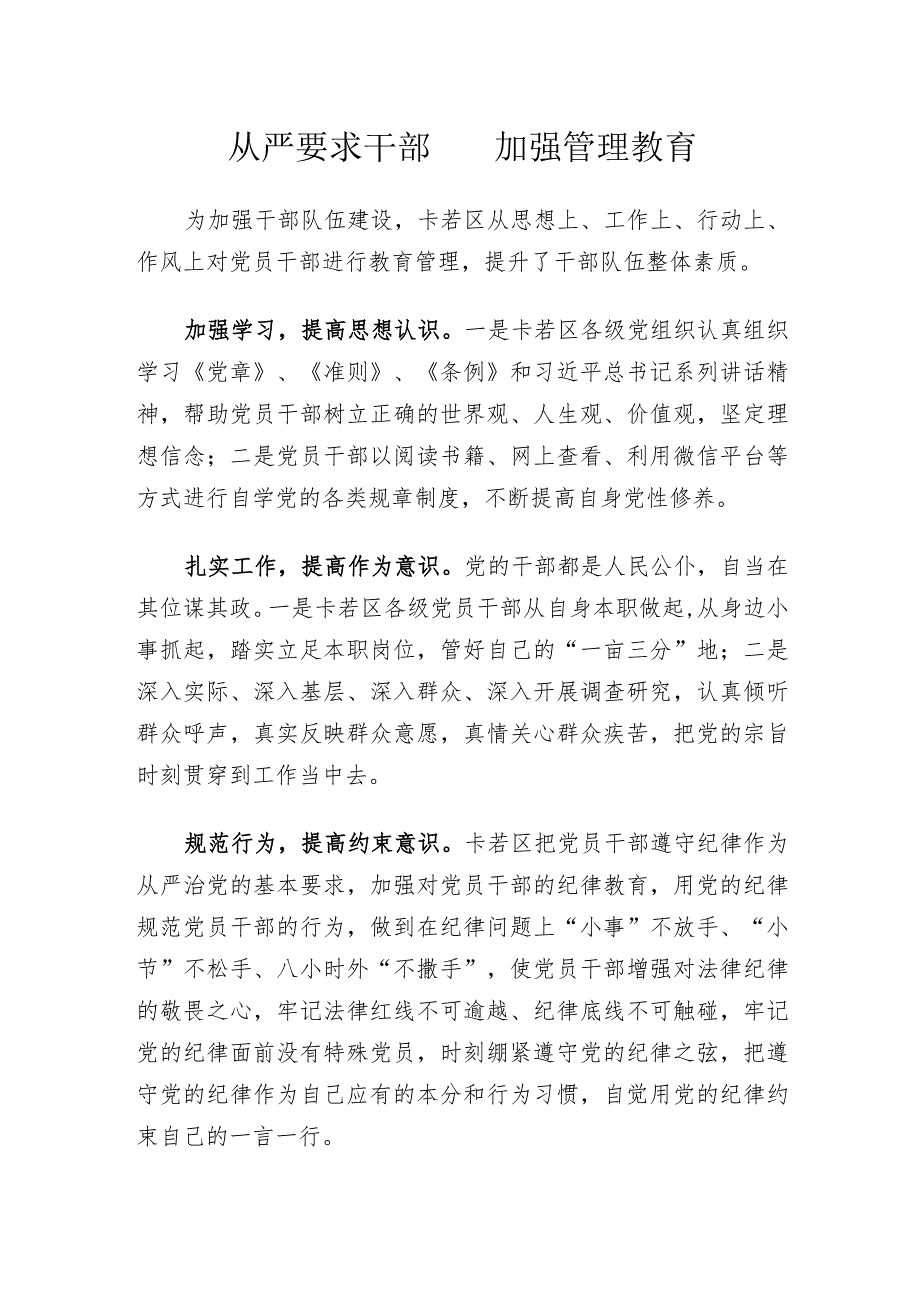 从严要求干部　　加强管理教育
为加强干部队伍建设，卡若区从思想上、工作上、行动上、
作风上对党员干部进行教育管理，提升了干部队伍整体素质。
加强学习，提高思想认识。一是卡若区各级党组织认真组织
学习《党章》、《准则》、《条例》和习近平总书记系列讲话精
神，帮助党员干部树立正确的世界观、人生观、价值观，坚定理
想信念；二是党员干部以阅读书籍、网上查看、利用微信平台等
方式进行自学党的各类规章制度，不断提高自身党性修养。
扎实工作，提高作为意识。党的干部都是人民公仆，自当在
其位谋其政。一是卡若区各级党员干部从自身本职做起,从身边小
事抓起，踏实立足本职岗位，管好自己的“一亩三分”地；二是
深入实际、深入基层、深入群众、深入开展调查研究，认真倾听
群众呼声，真实反映群众意愿，真情关心群众疾苦，把党的宗旨
时刻贯穿到工作当中去。
规范行为，提高约束意识。卡若区把党员干部遵守纪律作为
从严治党的基本要求，加强对党员干部的纪律教育，用党的纪律
规范党员干部的行为，做到在纪律问题上“小事”不放手、“小
节”不松手、八小时外“不撒手”，使党员干部增强对法律纪律
的敬畏之心，牢记法律红线不可逾越、纪律底线不可触碰，牢记
党的纪律面前没有特殊党员，时刻绷紧遵守党的纪律之弦，把遵
守党的纪律作为自己应有的本分和行为习惯，自觉用党的纪律约
束自己的一言一行。